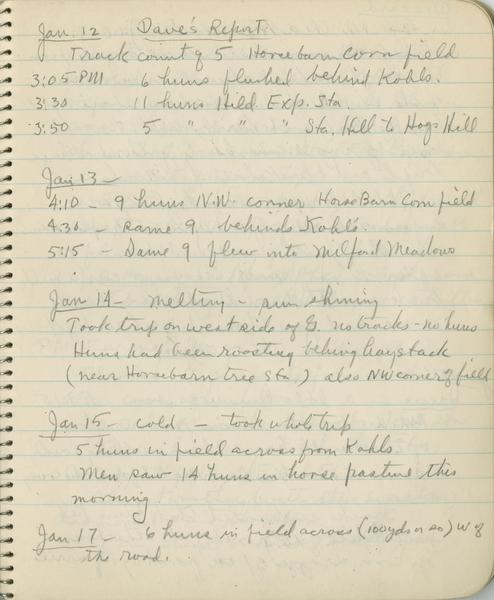 Jan 12 Dave's Report
Track count of 5 Horsebarn Corn field
3:05 PM 6 huns flushed behind Kohls.
3:30 11 huns Hild. Exp. Sta.
3:50 5 " " " Sta. Hill to Hogs Hill
Jan 13 -
4:10 - 9 huns N.W. corner Horse Barn Corn field
4:30 - same 9 behinds Kohl's.
5:15 - Same 9 flew into Milford Meadows
Jan 14 - melting - sun shining
Took trip on west side of G. no tracks - no huns
Huns had been roosting behing haystack
(near Horsebarn tree Sta.) also NW corner of field
Jan 15 - cold - took whole trip
5 huns in field across from Kohls
Men saw 14 huns in horse pasture this
morning
Jan 17 - 6 huns in field across (100yds or so) W of
the road.